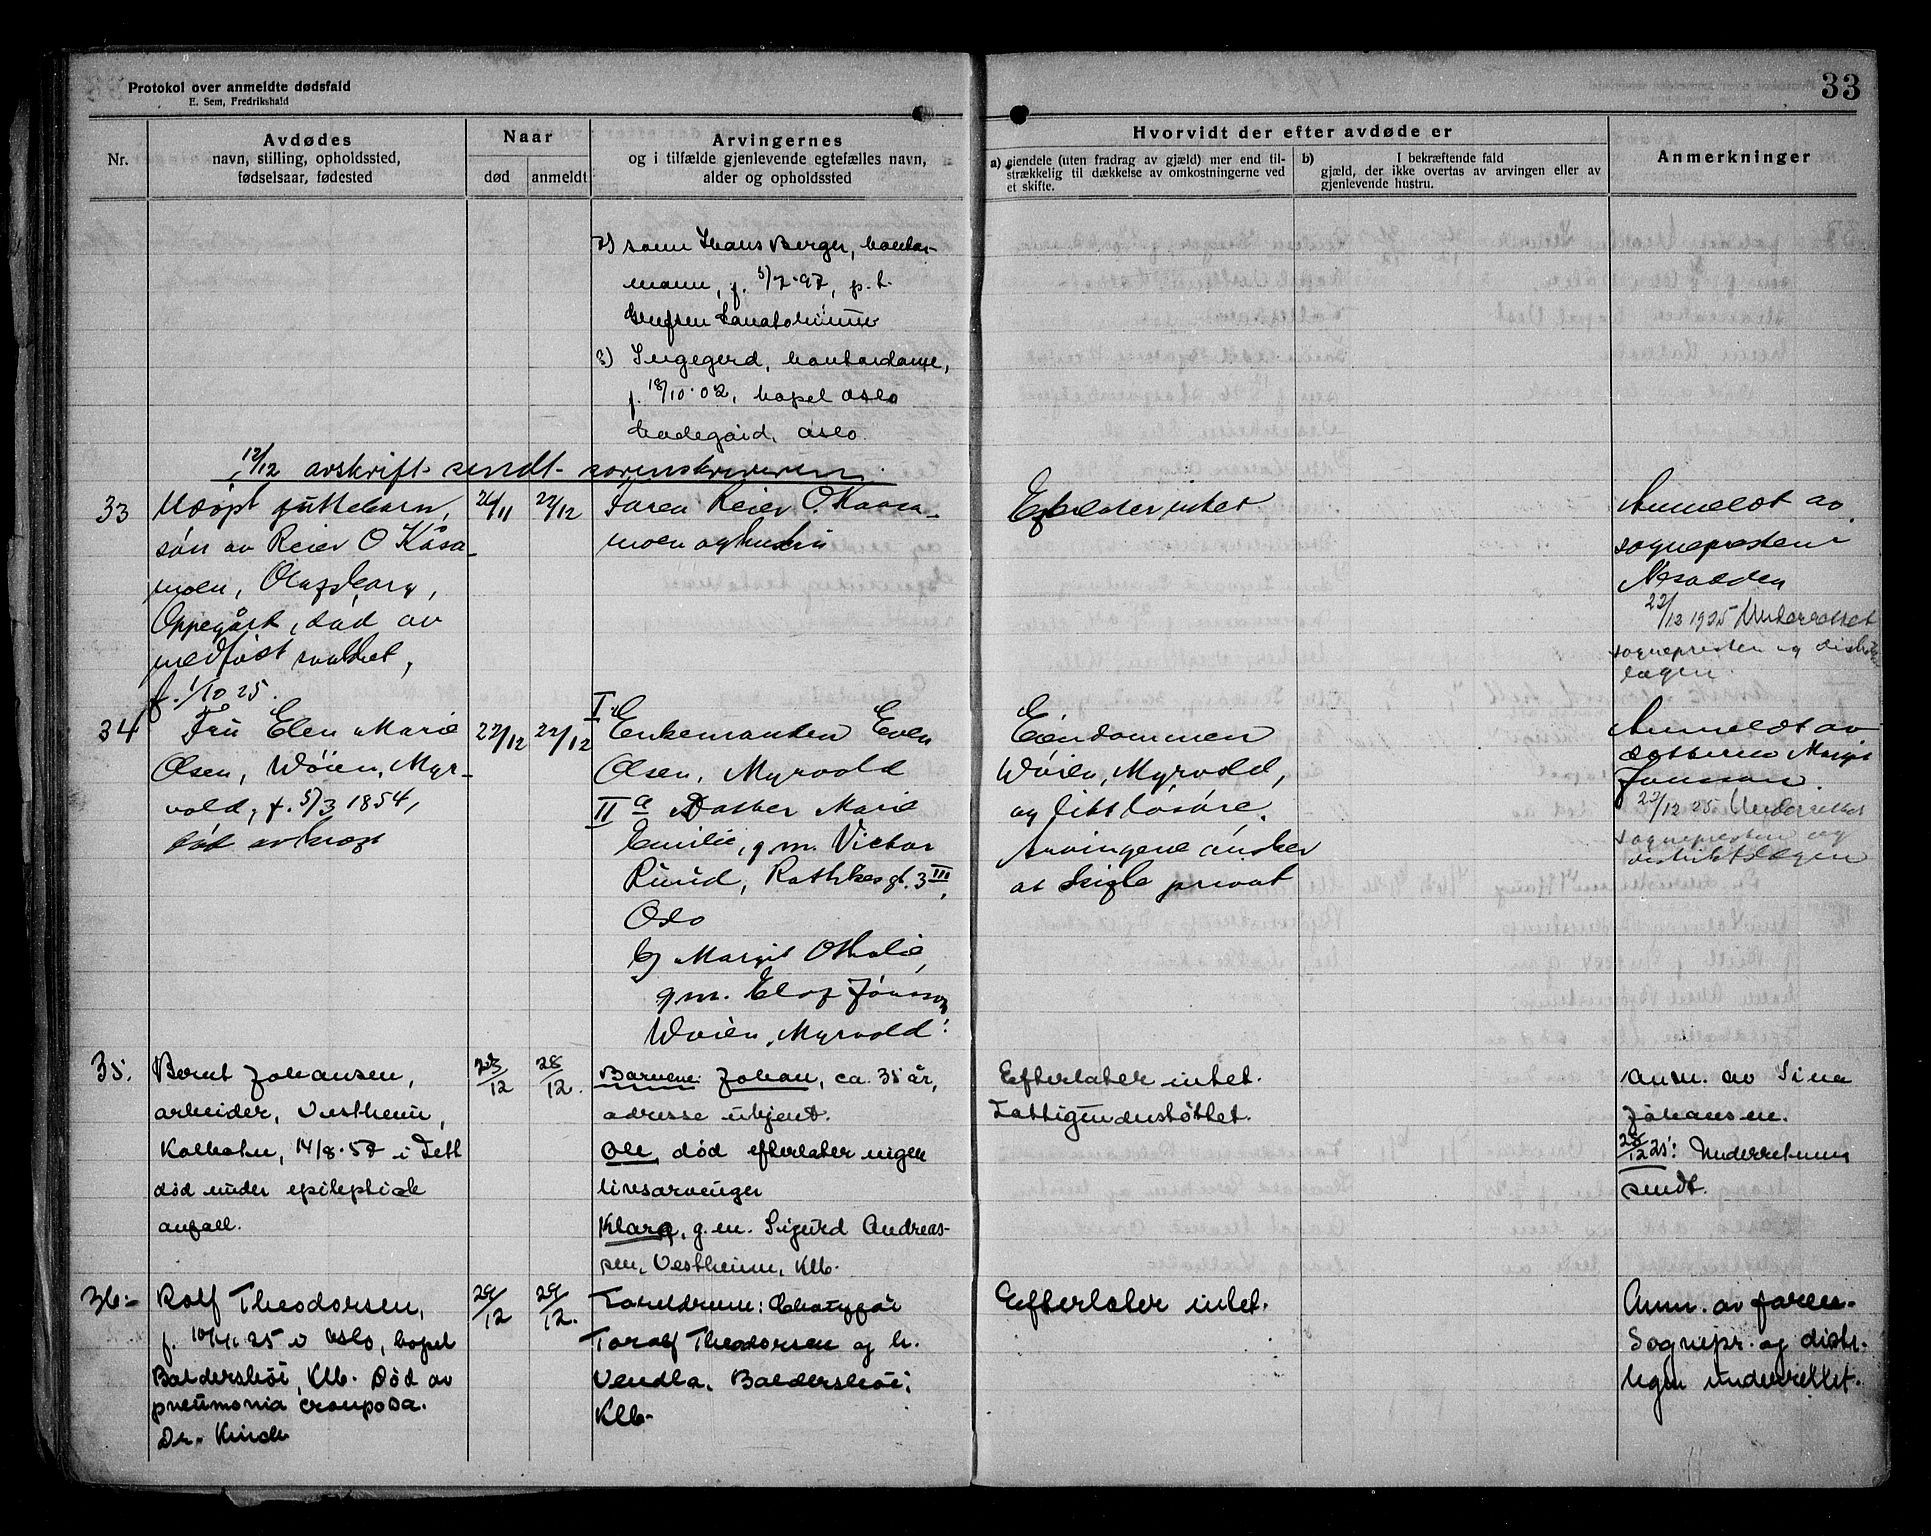 Protokol over anmeldte dødsfald
E. Sem, Fredrikshald
33
Nr.
Avdødes
navn, stilling, opholdssted,
fødselsaar, fødested
Naar
død
anmeldt
Arvingernes
og i tilfælde gjenlevende egtefælles navn,
alder og opholdssted
Hvorvidt der efter avdøde er
a) eiendele (uten fradrag av gjæld) mer end til-
strækkelig til dækkelse av omkostningerne ved
et skifte.
b) I bekræftende fald
gjæld, der ikke overtas av arvingen eller av
gjenlevende hustru.
Anmerkninger
2) sønn Hans Berger, kontor-
mann, f. 5/7-97, p.t.
Grefsen Sanatorium
3) Ingegerd, kontordame,
f. 18/10-02, bopel Oslo
Oslo.
12/12 avskrift sendt sorenskriveren
33
Udøpt guttebarn,
søn av Reier O Kåsa-
moen, Olafsborg,
Oppegård, død av
medfødt svakhet,
f. 1/10 25.
26/11
22/12
Faren Reier O. Kaasa-
moen og hustru
Efterlater intet
Anmeldt av
sognepresten i
Nesodden
22/12 1925 Underrettet
sognepresten og distrikts
lægen.
34
Fru Elen Marie
Olsen, Wøien, Myr-
vold, f. 5/3 1854,
død av kræft
22/12
22/12
I. Enkemanden Even
Olsen, Myrvold
II a Datter Marie
Emilie, g.m. Victor
Ruud, Rathkesgt. 3 III,
Oslo
b) Margit Othalie,
g.m. Elof Jönsson,
Wøien, Myrvold.
Eiendommen
Wøien, Myrvold,
og litt løsøre.
Arvingene ønsker
at skifte privat
Anmeldt av
datteren Margit
Jønsson.
22/12 25 Underrettet
sognepresten og
distriktslægen
35.
Bernt Johansen,
arbeider, Vestheim,
Kolbotn, 14/8-57 i
død under epileptisk
anfall.
23/12
28/12.
Barnene: Johan, ca. 35 år,
adresse ukjent.
Ole, død efterlater ingen
livsarvinger
Klara, g.m. Sigurd Andreas-
sen, Vestheim, Klb.
Efterlater intet.
Fattigunderstøttet.
Anm. av Sina
Johansen.
28/12 25: Underretning
sendt.
36.
Rolf Theodorsen,
f. 10/11 25 i Oslo, bopel
Baldershøi, Klb. Død av
pneumonia crouposa.
Dr.
29/12
29/12.
Foreldrene:
Toralf Theodorsen og h.
Vendla, Baldershøi,
Klb.
Efterlater intet.
Anm. av faren.
Sognepr. og distr.
legen underrettet.